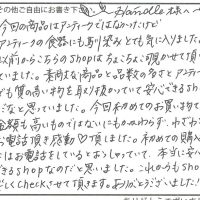 その他ご自由にお書き下
Handle様へ
今回の商品はアンティークではなかったけど
アンティークの食器にも馴染みとても気に入りました。
以前からこちらのShopはちょこちょこ覗かせて頂い
ていました。素敵な商品と品数の多さとアンティ
も質の高い物を取り扱かっていて安心できるshop
だなと思っていました。今回初めてのお買い物で
金額も高いものではないにもかかわらず、わざわざ
お電話頂き感動♡頂しました。初めての購入
にはお電話をしているとおっしゃっていて、本当に安心
できるshopなのだと思いました。これからもshop
しくcheckさせて頂きます。ありがとうございました!